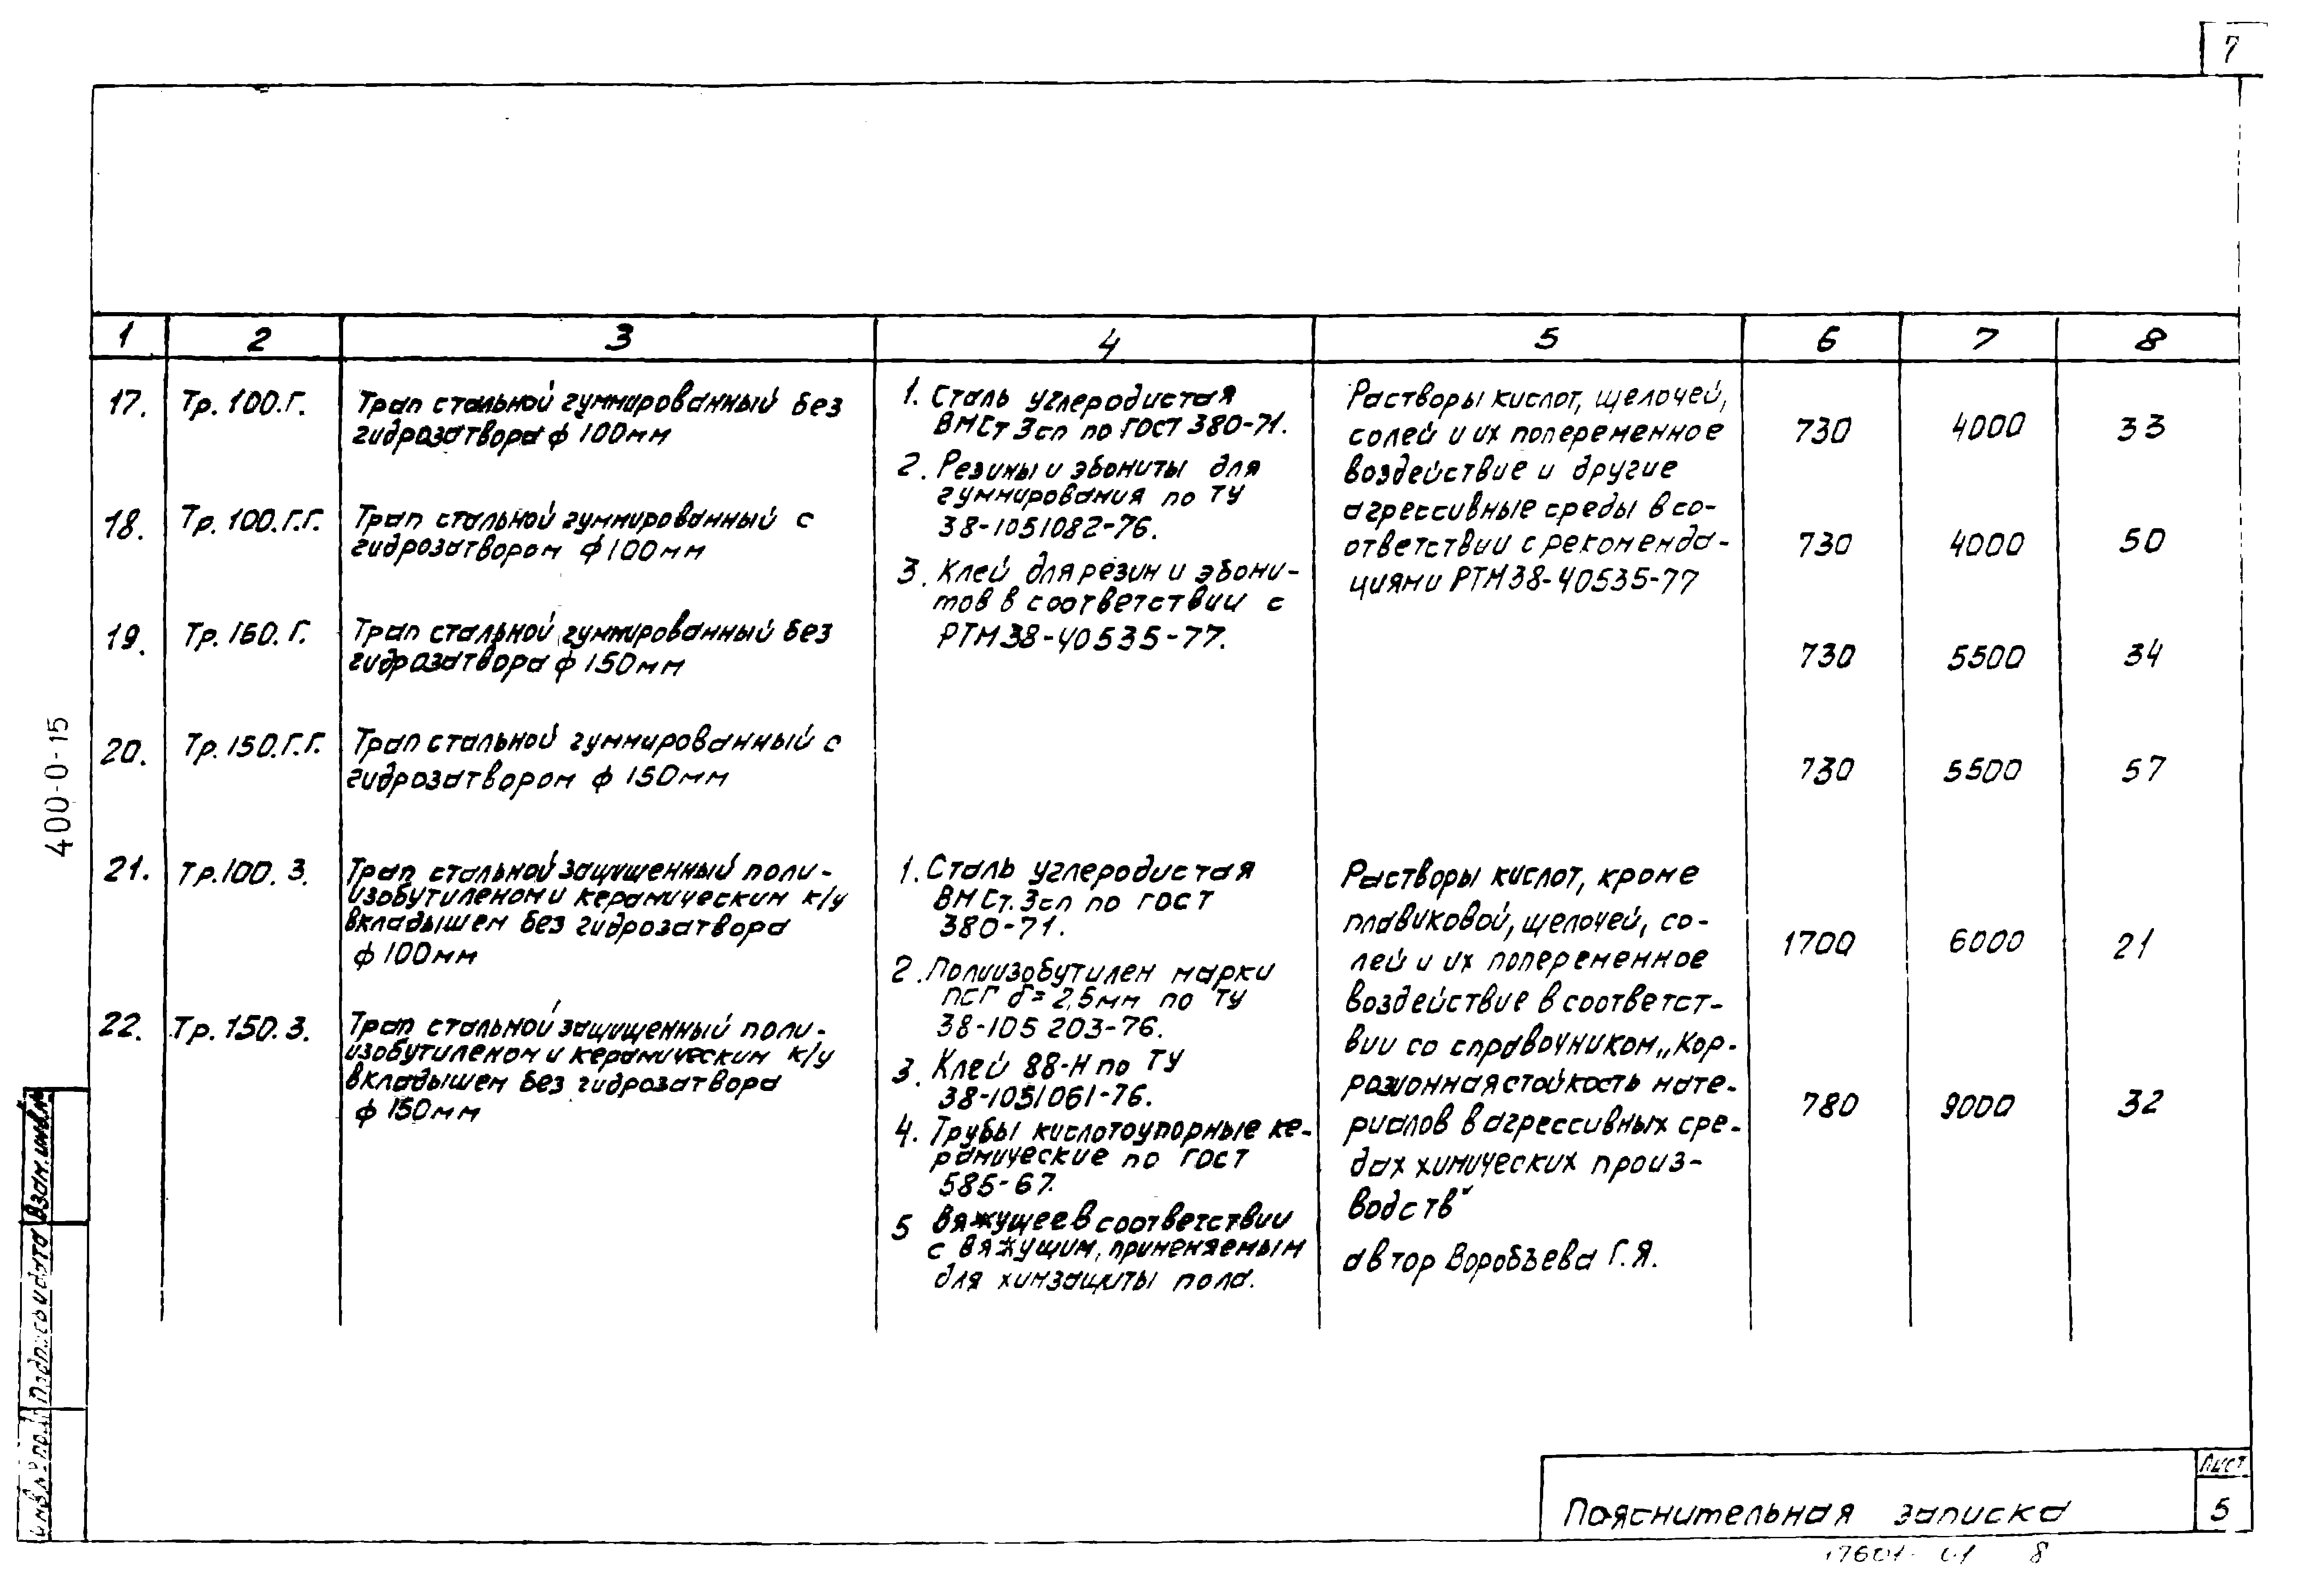 7
1 2 3 4 5 6 7 8
17. Тр. 100.Г.
Трап стальной гуммированный без
гидрозатвора ф 100мм
18. Тр. 100.Г.Г.
Трап стальной гуммированный с
гидрозатвором ф 100мм
19. Тр. 150. Г.
Трап стальной гуммированный без
гидрозатвора ф 150мм
20. Тр. 150.Г.Г.
Трап стальной гуммированный с
гидрозатвором ф 150мм
1. Сталь углеродистая
ВМСт 3сп по ГОСТ 380-71.
2. Резины и эбониты для
гуммирования по ТУ
38-1051082-76.
3. Клей для резин и эбони-
тов в соответствии с
РТМ 38-40535-77.
Растворы кислот, щелочей,
солей и их попеременное
воздействие и другие
агрессивные среды в со-
ответствии с рекоменда-
циями РТМ 38-40535-77
730 4000 33
730 4000 50
730 5500 34
730 5500 57
21. Тр.100. З.
Трап стальной защищенный поли-
изобутиленом и керамическим к/у
вкладышем без гидрозатвора
ф 100мм
22. Тр. 150. З.
Трап стальной защищенный поли-
изобутиленом и керамическим к/у
вкладышем без гидрозатвора
ф 150мм
1. Сталь углеродистая
ВМСт. 3сп по ГОСТ
380-71.
2. Полиизобутилен марки
ПСГ δ= 2,5мм по ТУ
38-105 203-76.
3. Клей 88-Н по ТУ
38-1051061-76.
4. Трубы кислотоупорные ке-
рамические по ГОСТ
585-67.
5 Вяжущее в соответствии
с вяжущим, применяемым
для химзащиты пола.
Растворы кислот, кроме
плавиковой, щелочей, со-
лей и их попеременное
воздействие в соответст-
вии со справочником „Кор-
розионная стойкость мате-
риалов в агрессивных сре-
дах химических произ-
водств"
автор Воробъева Г.Я.
1700 6000 21
780 9000 32
400-0-15
Взам. инв.№
Подпись и дата
Инв.№ подл.
Пояснительная записка
Лист
5
17601-01 8